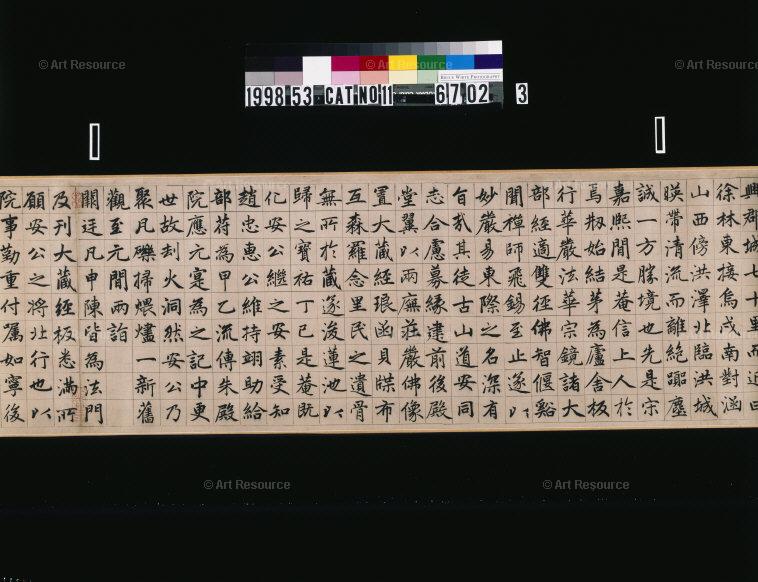 興郡城七十里而近曰
徐林東接烏戍南對涵
山西傍洪澤北臨洪城
暎帶清流而離絕嚻塵
誠一方勝境也先是宗
嘉熙間是菴信上人於
焉剏始結茅為廬舍板
行華嚴法華宗鏡諸大
部經適雙徑佛智偃谿
聞禪師飛錫至止遂以
妙嚴易東際之名深有
旨哉其徒古山道安同
志合慮募緣建前後殿
堂翼以兩廡莊嚴佛像
置大藏經琅函貝牒布
互森羅念里民之遺骨
無所於藏遂浚蓮池以
歸之寶祐丁巳是菴既
化安公繼之安素受知
趙忠惠公維持翊助給
部苻為甲乙流傳朱殿
院應元寔為之記中更
世故刦火洞然安公乃
聚凡礫掃煨燼一新舊
觀至元間兩詣
闕廷凡申陳皆為法門
及刊大藏經板悉滿所
願安公之將北行也以
院事勤重付囑如寧後
1998 53 CAT NO 11 6 7 02 3
BRUCE WHITE PHOTOGRAPHY
© Art Resource
© Art Resource
© Art Resource
© Art Resource
© Art Resource